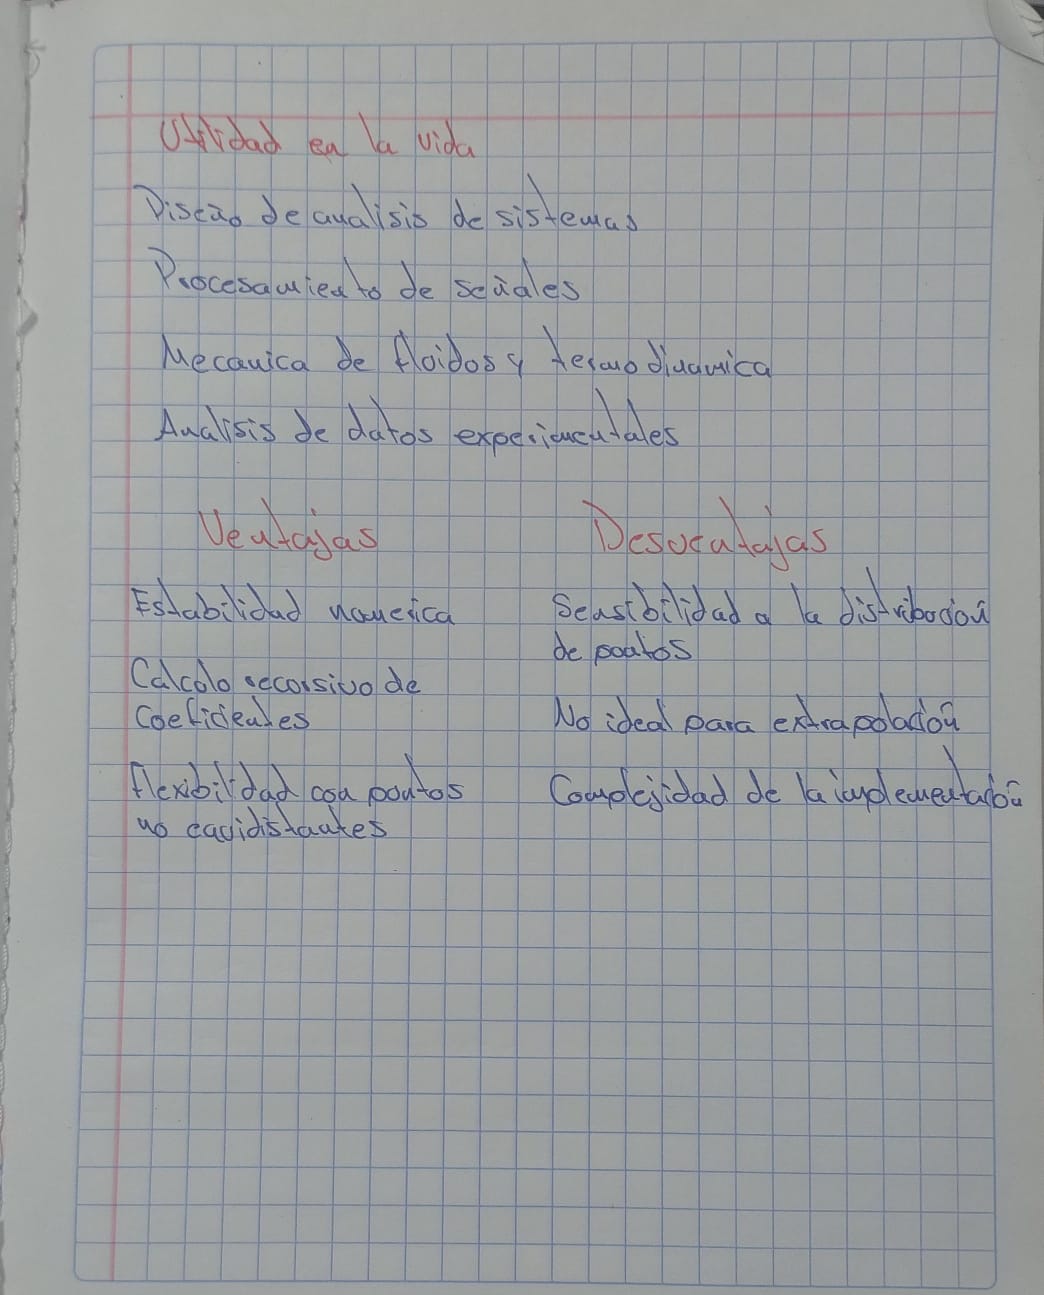 Utilidad en la vida
Diseño de analisis de sistemas
Procesamiento de señales
Mecanica de fluidos y termodinamica
Analisis de datos experimentales
Ventajas
Desventajas
Estabilidad numerica
Calculo recursivo de
coeficientes
flexibilidad con puntos
no equidistantes
Sensibilidad a la distribución
de puntos
No ideal para extrapolación
Complejidad de la implementación